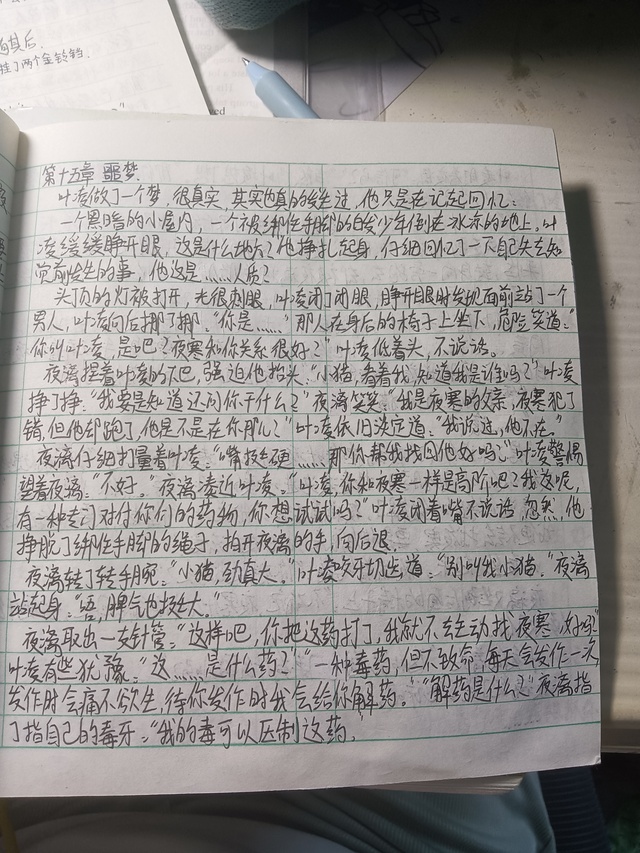 其后.
挂了两个金铃铛.
第十五章 噩梦.
叶凌做了一个梦,很真实,其实也真的发生过,他只是在记起回忆:
一个黑暗的小屋内,一个被绑住手脚的白发少年倒在冰冻的地上,叶
凌缓缓睁开眼,这是什么地方?他挣扎起身,仔细回忆了一下自己失去知
觉前发生的事,他这是……人质?
头顶的灯被打开,光很刺眼,叶凌闭了闭眼,睁开眼时发现面前站了一个
男人,叶凌向后挪了挪:“你是……”那人在身后的椅子上坐下,危险笑道:“
你叫叶凌,是吧?夜寒和你关系很好?”叶凌低着头,不说话。
夜漓捏着叶凌的下巴,强迫他抬头:“小猫,看着我,知道我是谁吗?”叶凌
挣了挣:“我要是知道还问你干什么?”夜漓笑笑:“我是夜寒的父亲,夜寒犯了
错,但他却跑了,他是不是在你那儿?”叶凌依旧淡定道:“我说过,他不在。”
夜漓仔细打量着叶凌:“嘴挺硬……那你帮我找回他好吗?”叶凌警惕
望着夜漓:“不好。”夜漓凑近叶凌:“叶凌,你和夜寒一样是高阶吧?我这呢,
有一种专门对付你们的药物,你想试试吗?”叶凌闭着嘴不说话,忽然,他
挣脱了绑住手脚的绳子,拍开夜漓的手,向后退.
夜漓转了转手腕:“小猫,劲真大。”叶凌咬牙切齿道:“别叫我小猫。”夜漓
站起身:“唔,脾气也挺大。”
夜漓取出一支针管:“这样吧,你把这药打了,我就不去主动找夜寒,好吗?”
叶凌有些犹豫:“这……是什么药?”“一种毒药,但不致命,每天会发作一次,
发作时会痛不欲生,待你发作时我会给你解药。”“解药是什么?”夜漓指
了指自己的毒牙:“我的毒可以压制这药。”